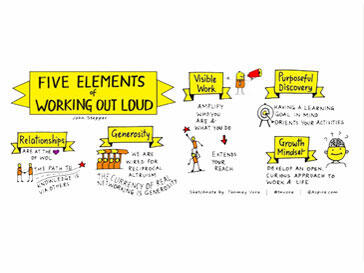 FIVE ELEMENTS
of
WORKING OUT LOUD
John Stepper
Relationships
ARE AT THE
OF WOL
THE PATH TO
KNOWLEDGE IS
VIA OTHERS
Generosity
WE ARE
WIRED FOR
RECIPROCAL
ALTRUISM
THE CURRENCY OF REAL
NETWORKING IS GENEROSITY
Visible
Work
AMPLIFY
WHO YOU
ARE &
WHAT YOU DO
EXTENDS
YOUR
REACH
Purposeful
Discovery
HAVING A LEARNING
GOAL IN MIND
ORIENTS YOUR ACTIVITIES
Growth
Mindset
DEVELOP AN OPEN,
CURIOUS APPROACH TO
WORK & LIFE
Sketchnote by Tanmay Vora | @tnvora | QAspire.com